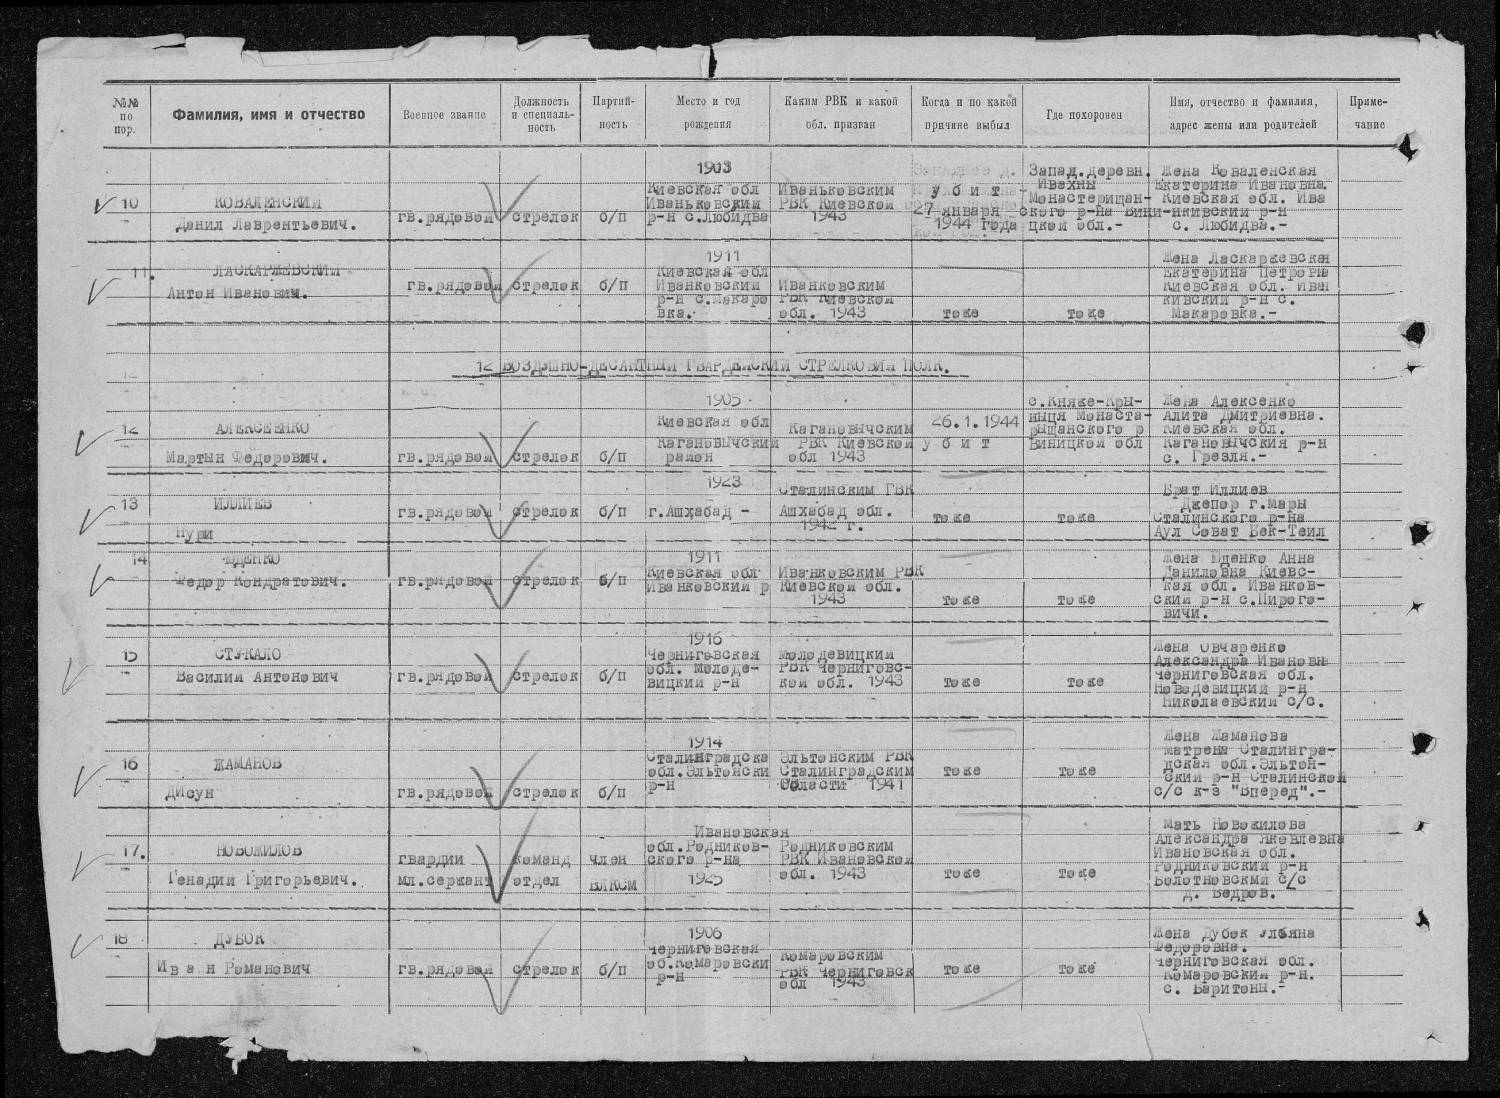 №№ по пор.
Фамилия, имя и отчество
Военное звание
Должность и специальность
Партийность
Место и год рождения
Каким РВК и какой обл. призван
Когда и по какой причине выбыл
Где похоронен
Имя, отчество и фамилия, адрес жены или родителей
Примечание
10
КОВАЛЕНСКИЙ
Данил Лаврентьевич.
гв.рядовой
стрелок
б/п
1903
Киевская обл
Иваньковский
р-н с.Любидва
Иваньковским
РВК Киевской
1943
убит -
27 января
1944 года
Запад.деревн.
Ивахны
Монастерищан-
ского р-на Вини-
цкой обл.-
Жена Коваленская
Екатерина Ивановна.
Киевская обл. Ива
нкивский р-н
с. Любидва.-
11.
ЛАСКАРЖЕВСКИЙ
Антон Иванович.
гв.рядовой
стрелок
б/п
1911
Киевская обл
Иванковский
р-н с.Макаро
вка.-
Иванковским
РВК Киевской
обл. 1943
тоже
тоже
Жена Ласкаржевская
Екатерина Петровна
Киевская обл. Иван
кивский р-н с.
Макаровка.-
12 ВОЗДУШНО-ДЕСАНТНЫЙ ГВАРДЕЙСКИЙ СТРЕЛКОВЫЙ ПОЛК.
12
АЛЕКСЕЕНКО
Мартын Федорович.
гв.рядовой
стрелок
б/п
1905
Киевская обл
Кагановычский
район
Кагановычским
РВК Киевской
обл 1943
26.1.1944
убит
с.Княже-Кры-
ныця Монаста-
рыщанского р
Виницкой обл
Жена Алексенко
Алита Дмитриевна.
Киевская обл.
Кагановычския р-н
с. Грезля.-
13
ИЛЛИЕВ
Нури
гв.рядовой
стрелок
б/п
1923
г.Ашхабад -
Сталинским РВК
Ашхабад обл.
1942 г.
тоже
тоже
Брат Иллиев
Джепор г.Мары
Сталинского р-на
Аул Соват Бек-Теил
14
ЮДЕНКО
Федор Кондратович.
гв.рядовой
стрелок
б/п
1911
Киевская обл
Иванковский р
Иванковским РВК
Киевской обл.
1943
тоже
тоже
Жена Юденко Анна
Даниловна Киевс-
кая обл. Иванков-
ский р-н с.Пирого-
вичи.
15
СТУКАЛО
Василий Антонович
гв.рядовой
стрелок
б/п
1916
Черниговская
обл. Молоде-
вицкий р-н
Молодевицкий
РВК Черниговс-
кой обл. 1943
тоже
тоже
Жена Овчаренко
Александра Ивановна
Черниговская обл.
Новодевицкий р-н
Николаевский с/с.
16
ЖАМАНОВ
Дисун
гв.рядовой
стрелок
б/п
1914
Сталинградска
обл.Эльтонски
р-н
Эльтонским РВК
Сталинградским
Области 1941
тоже
тоже
Жена Жаманова
Матрена Сталингра-
дская обл.Эльтон-
ский р-н Сталинской
с/с к-з "Вперед".-
17.
НОВОЖИЛОВ
Генадий Григорьевич.
гвардии
мл.сержант
команд
отдел
член
ВЛКСМ
Ивановская
обл.Родников-
ского р-на
1925
Родниковским
РВК Ивановской
обл. 1943
тоже
тоже
Мать Новожилова
Александра Яковлевна
Ивановская обл.
Родниковский р-н
Болотновскмй с/с
д. Ведров.
18
ДУБОК
Иван Романович
гв.рядовой
стрелок
б/п
1906
Черниговская
об.Комаровски
р-н
Комаровским
РВК Черниговск
обл 1943
тоже
тоже
Жена Дубок Ульяна
Федоровна.
Черниговская обл.
Комаровский р-н.
с. Варитоны.-